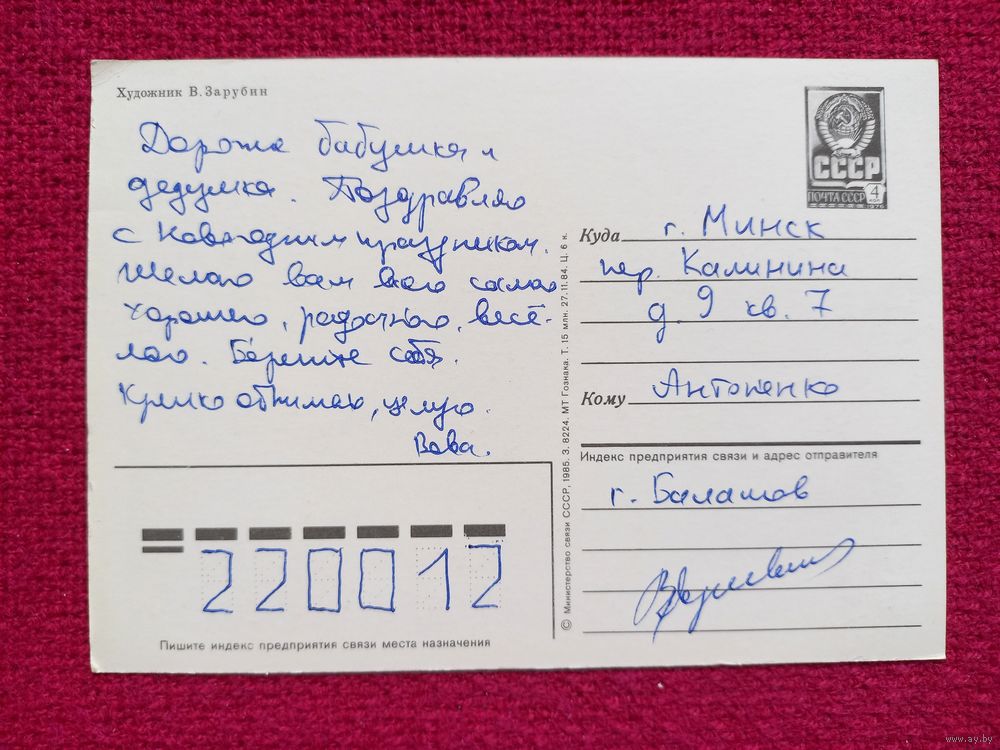 Художник В. Зарубин
СССР
ПОЧТА СССР
4
коп
1976
Дорогие бабушка и
дедушка. Поздравляю
с Новогодним праздником.
Желаю вам всего самого
хорошего, радостного, весё-
лого. Берегите себя.
Крепко обнимаю, целую.
Вова.
Куда г. Минск
пер. Калинина
д. 9 кв. 7
Кому Антоненко
Индекс предприятия связи и адрес отправителя
г. Балашов
220012
Пишите индекс предприятия связи места назначения
© Министерство связи СССР, 1985. З. 8224. МТ Гознака. Т. 15 млн. 27.11.84. Ц. 6 к.
www.ay.by